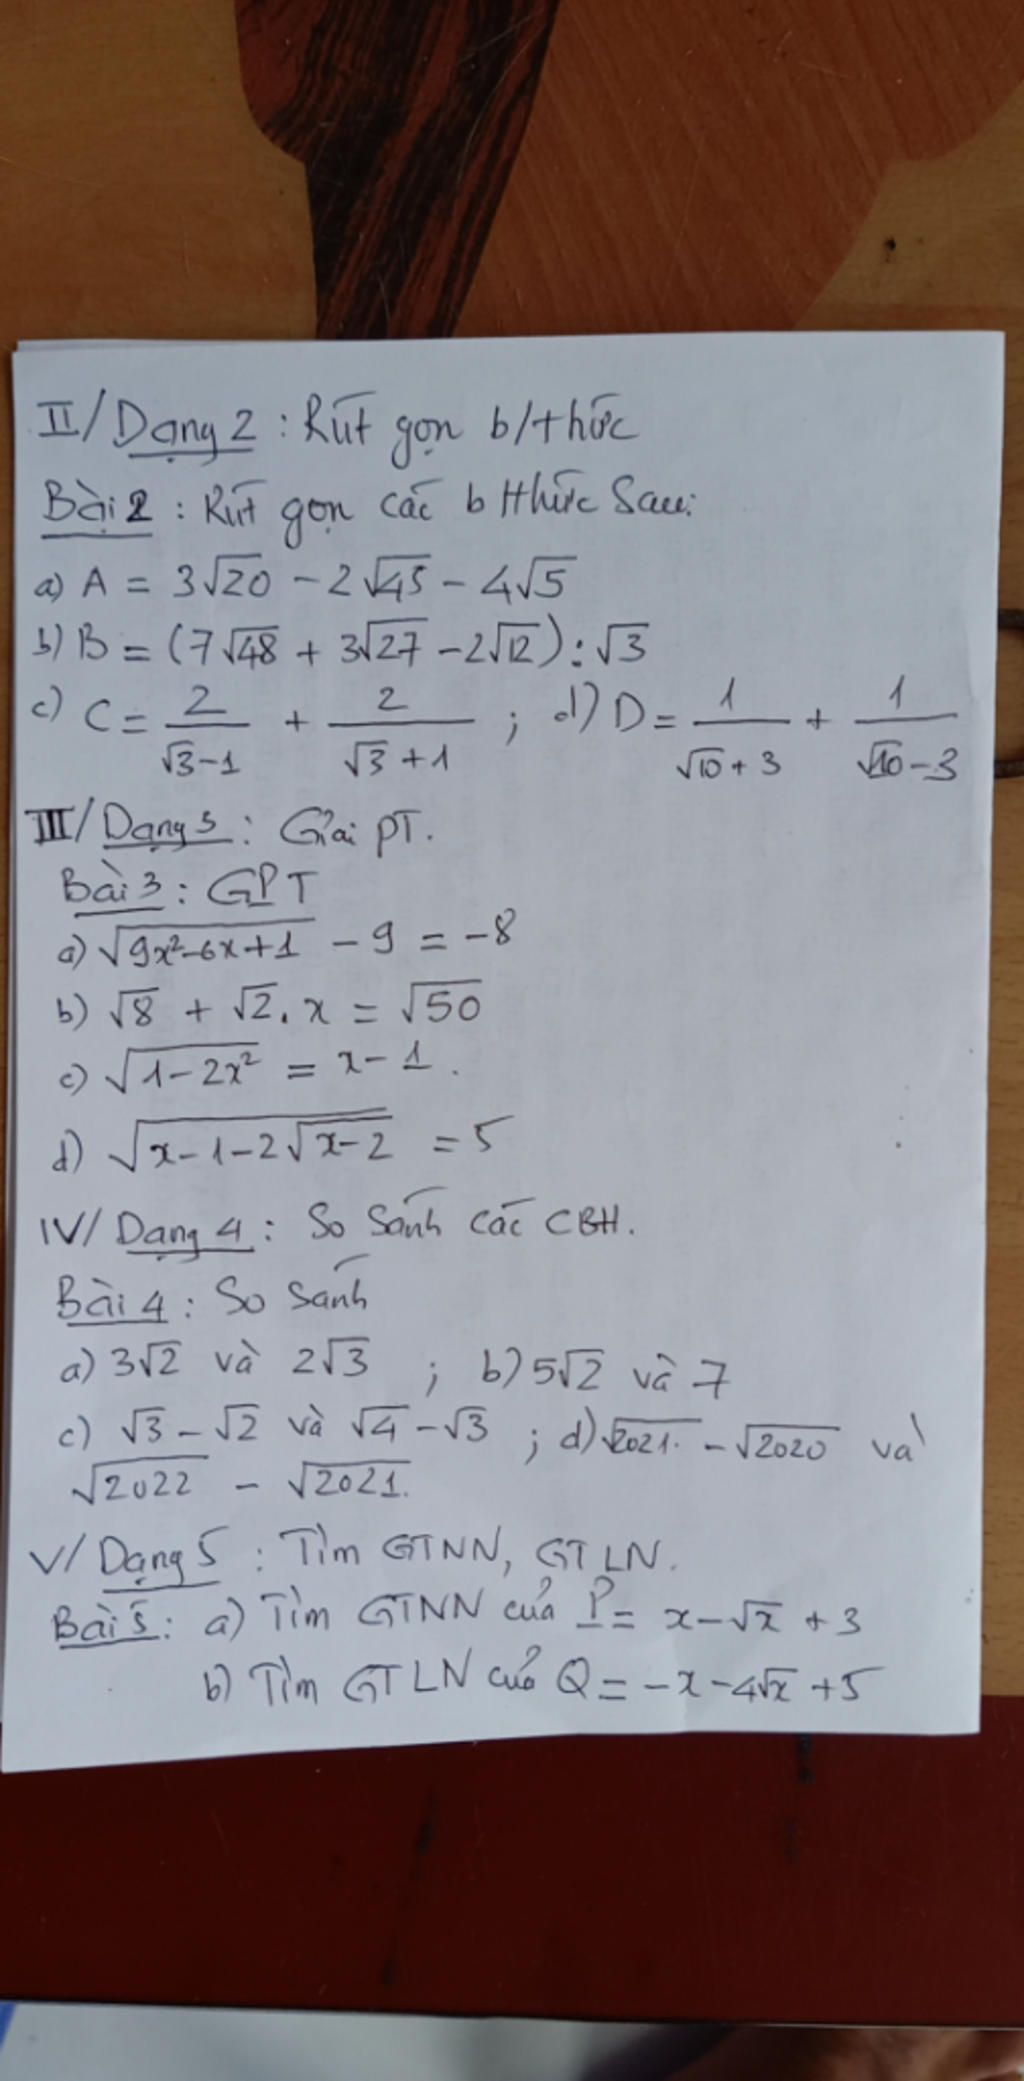 II/ Dạng 2 : Rút gọn b/thức
Bài 2 : Rút gọn các b thức Sau:
a) A = 3√20 - 2√45 - 4√5
b) B = (7√48 + 3√27 - 2√12) : √3
c) C = 2/(√3-1) + 2/(√3+1) ; d) D = 1/(√10+3) + 1/(√10-3)
III/ Dạng 3 : Giải PT.
Bài 3 : GPT
a) √(9x²-6x+1) - 9 = -8
b) √8 + √2 . x = √50
c) √(1-2x²) = x-1.
d) √(x-1-2√(x-2)) = 5
IV/ Dạng 4 : So Sánh các CBH.
Bài 4 : So Sánh
a) 3√2 và 2√3 ; b) 5√2 và 7
c) √3 - √2 và √4 - √3 ; d) √2021 - √2020 và
√2022 - √2021.
V/ Dạng 5 : Tìm GTNN, GTLN.
Bài 5 : a) Tìm GTNN của P = x - √x + 3
b) Tìm GTLN của Q = -x - 4√x + 5